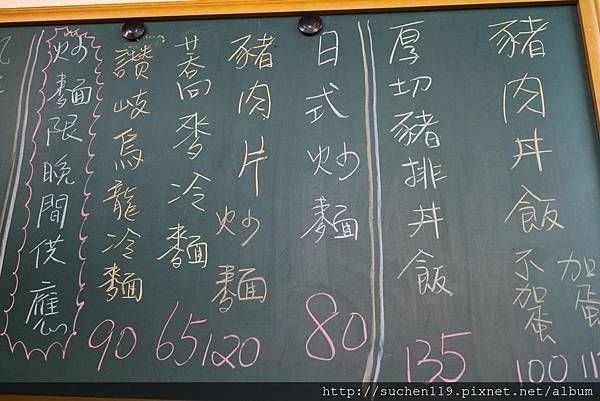 豬肉丼飯
加蛋
11
不加蛋
100
厚切豬排丼飯
135
日式炒麵
80
豬肉片炒麵
120
蕎麥冷麵
65
讚岐烏龍冷麵
90
炒麵限晚間供應
http://suchen119.pixnet.net/album